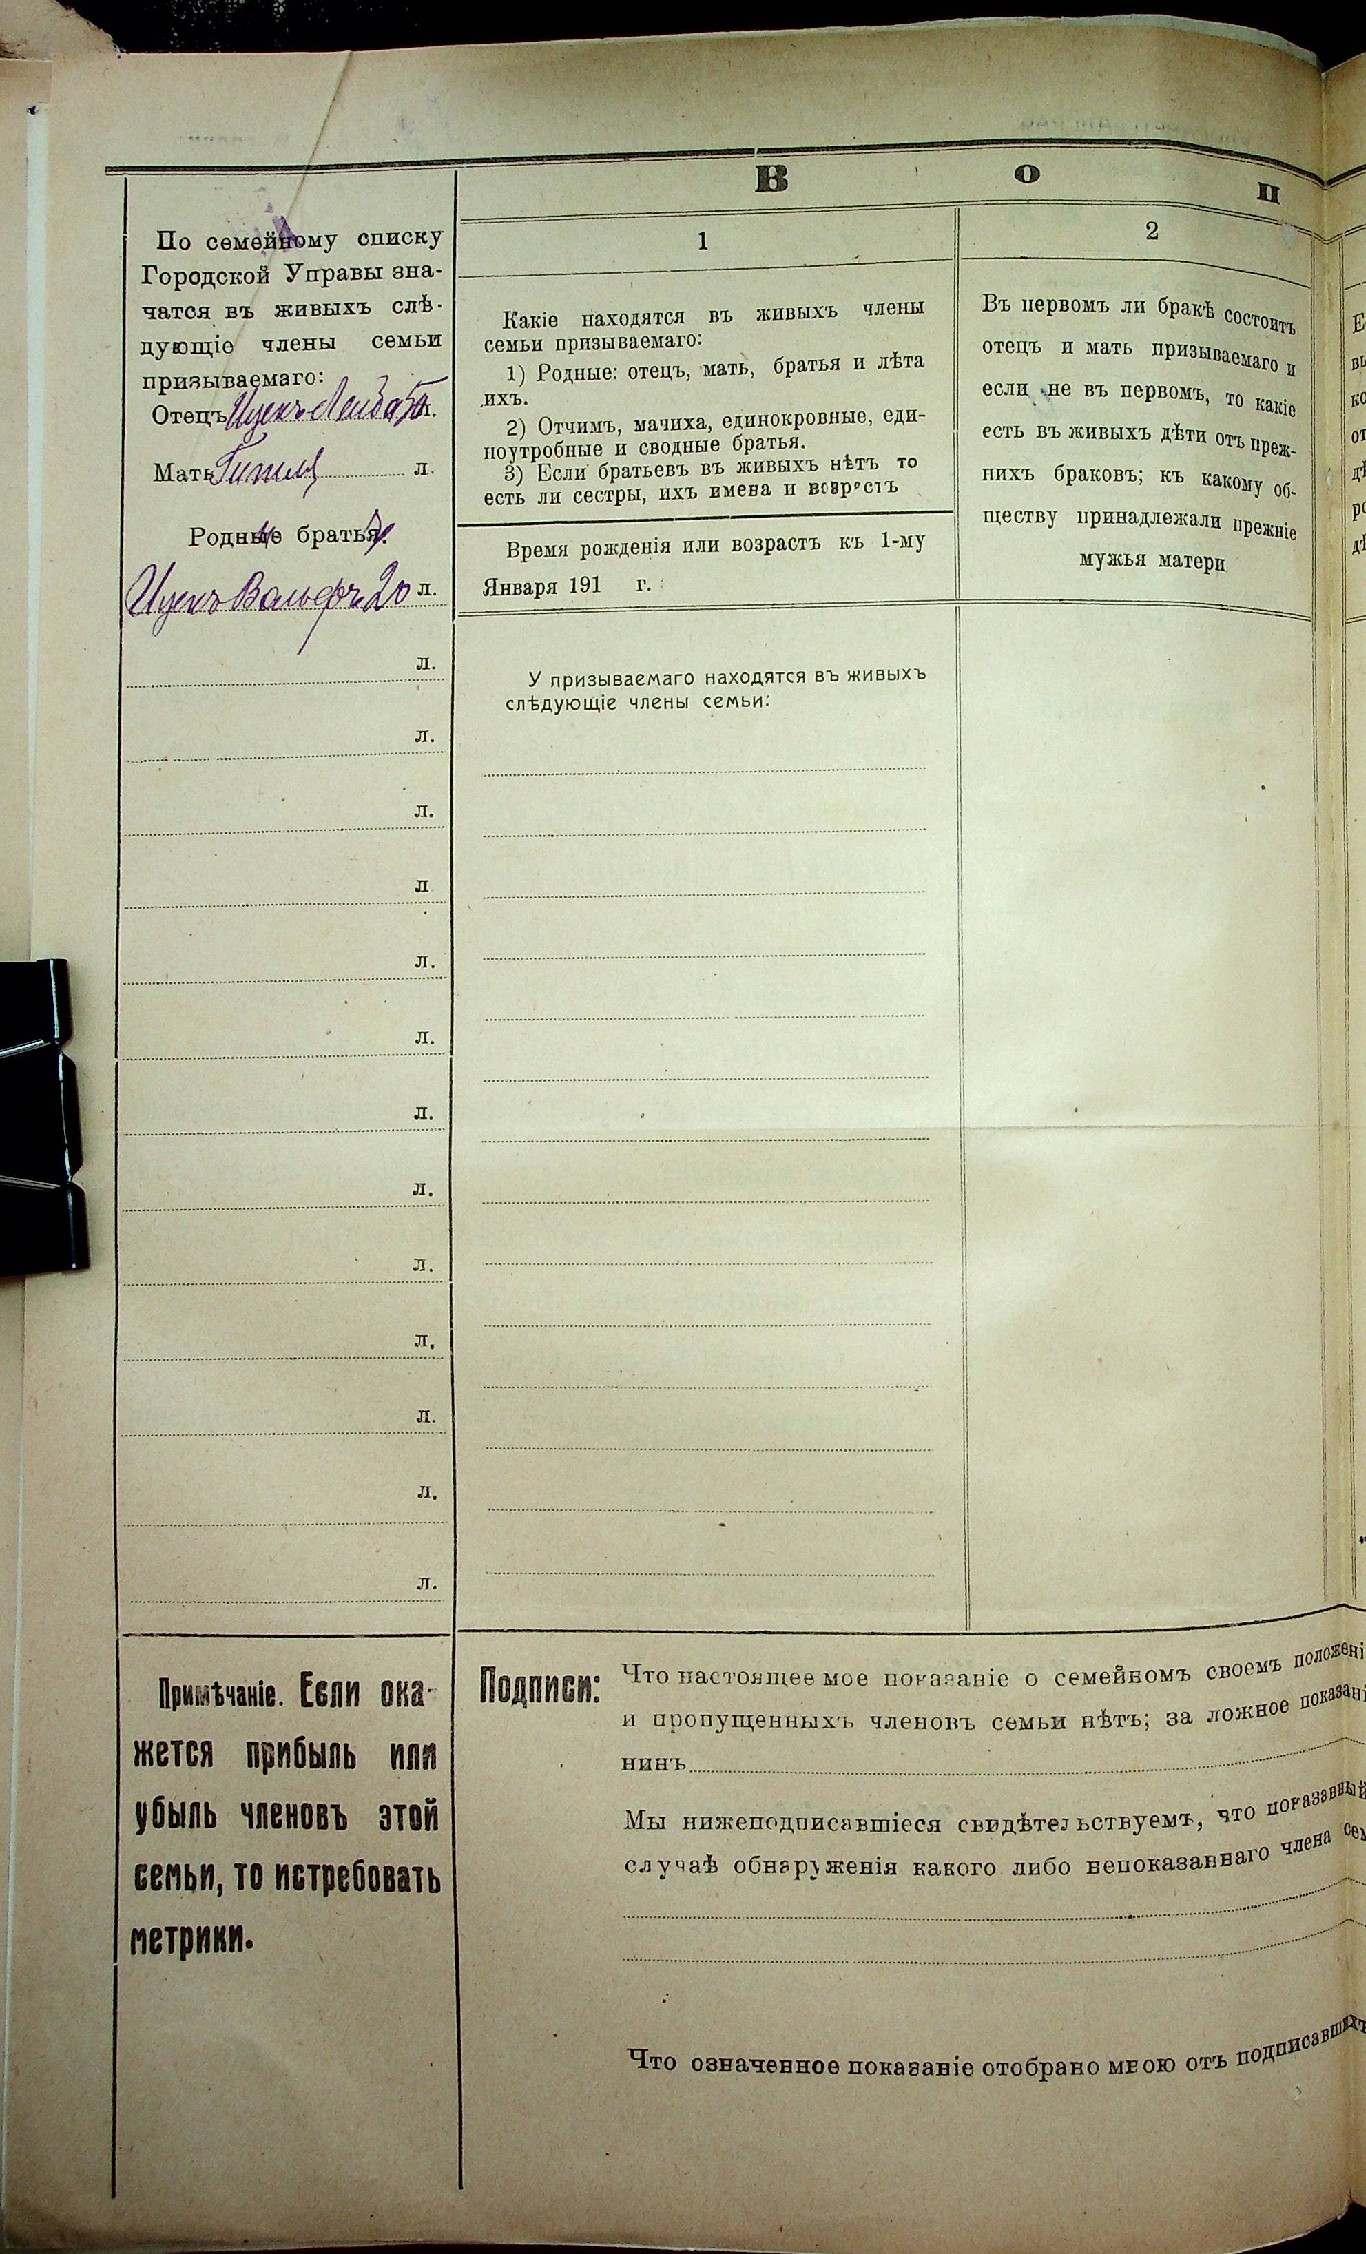 В о п
По семейному списку
Городской Управы зна-
чатся въ живыхъ слѣ-
дующіе члены семьи
призываемаго:
Отецъ Ицекъ Лейба 50 л.
Мать Гитля л.
Родные братья:
Ицекъ Вольфъ 20 л.
л.
л.
л.
л
л.
л.
л.
л.
л.
л.
л.
л.
л.
1
Какіе находятся въ живыхъ члены
семьи призываемаго:
1) Родные: отецъ, мать, братья и лѣта
ихъ.
2) Отчимъ, мачиха, единокровные, еди-
ноутробные и сводные братья.
3) Если братьевъ въ живыхъ нѣтъ то
есть ли сестры, ихъ имена и возрастъ
Время рожденія или возрастъ къ 1-му
Января 191 г.
У призываемаго находятся въ живыхъ
слѣдующіе члены семьи:
2
Въ первомъ ли бракѣ состоитъ
отецъ и мать призываемаго и
если не въ первомъ, то какіе
есть въ живыхъ дѣти отъ преж-
нихъ браковъ; къ какому об-
ществу принадлежали прежніе
мужья матери
Примѣчаніе. Если ока-
жется прибыль или
убыль членовъ этой
семьи, то истребовать
метрики.
Подписи: Что настоящее мое показаніе о семейномъ своемъ положені
и пропущенныхъ членовъ семьи нѣтъ; за ложное показані
нинъ
Мы нижеподписавшіеся свидѣтельствуемъ, что показанный
случаѣ обнаруженія какого либо непоказаннаго члена сем
Что означенное показаніе отобрано мною отъ подписавшихъ